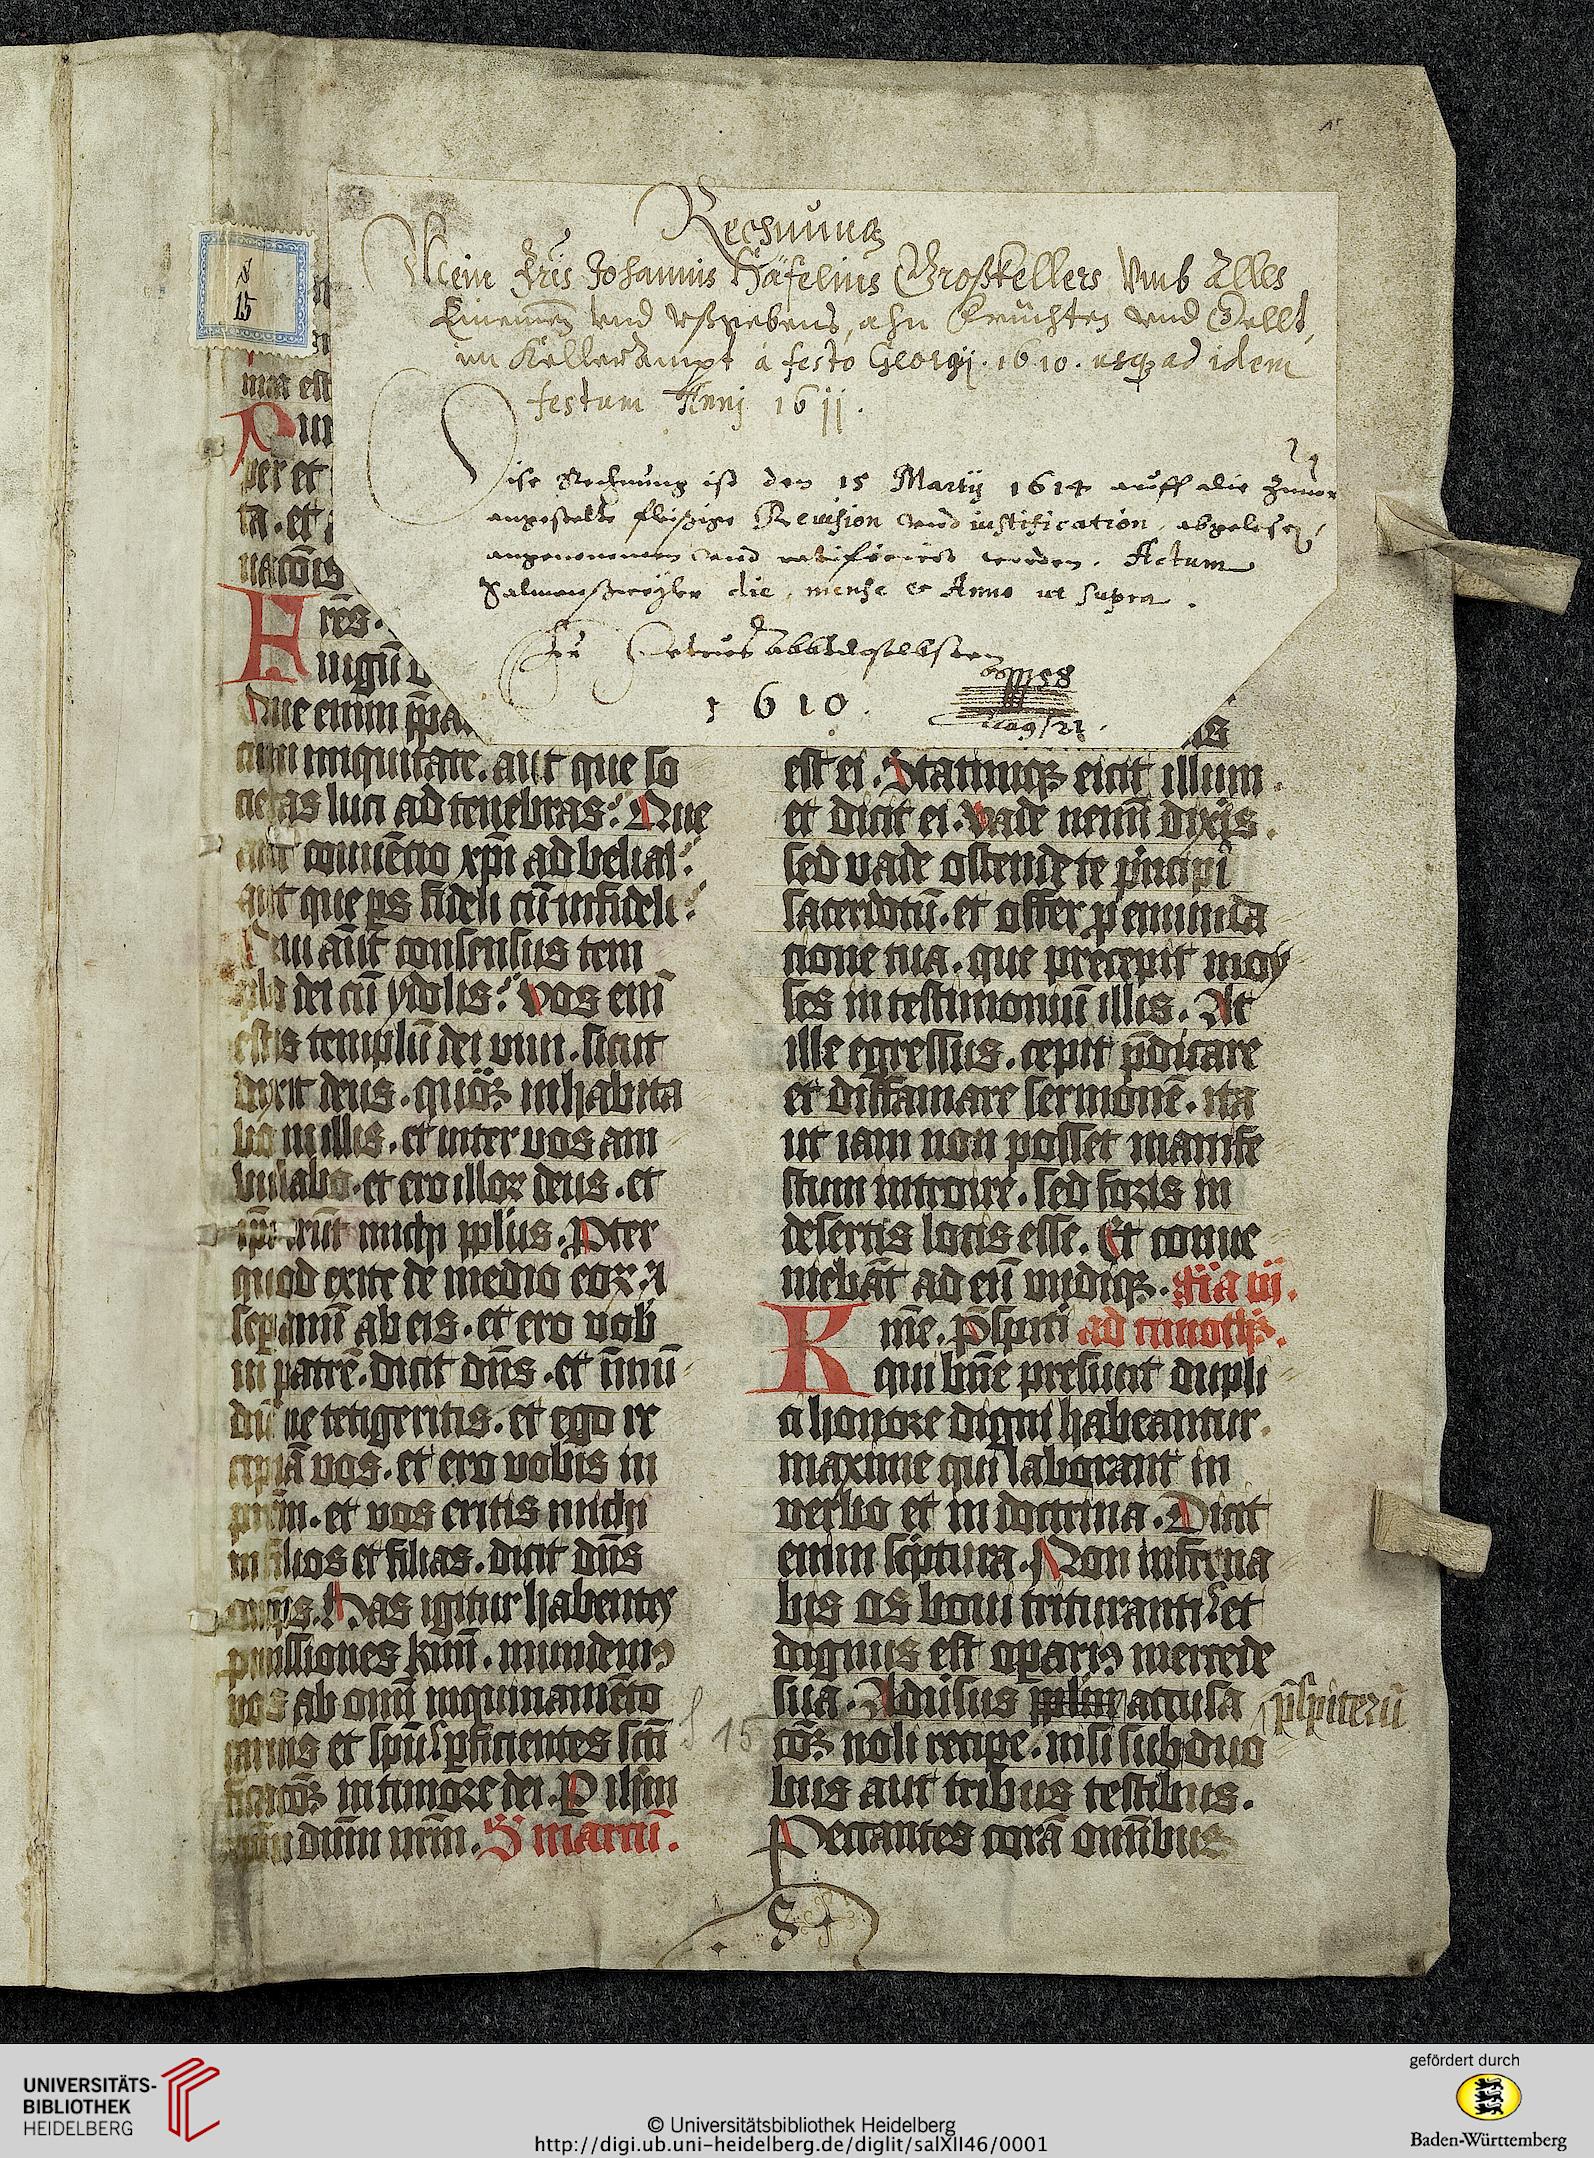 Rechnung
Mein Fris Johannis Häfelins Großkellers Vmb Alles
Einemen vnd vßgebens, ahn Früchten vnd Gellt,
im Kelleraampt à festo Georgij. 1610. usq ad idem
festum Annj 1611.
Dise Rechnung ist den 15 Martij 1614 auff die Zuuor
angestelte fleißige Revision vnd iustification, abgelesen,
angenommen vnd ratificiert worden. Actum
Salmanßweyler die, mense et Anno ut supra.
Fr Petrus Abbt daselbsten
1610.
15
ma est
per et
ta. et
nac̄ois
Fr̄es.
iugū
Que enim p̄pa
cum iniquitate. aut que so
cietas luci ad tenebras? Que
aut conuēcio xp̄i ad belial?
aut que ps fideli cū infideli?
Qui aūt consensus tem
plo dei cū ydolis? vos eīm
estis templū dei viui. sicut
dixit deus. qm̄ inhabita
bo in illis. et inter vos am
bulabo. et ero illoꝝ deus. et
ip̄i erūt michi pp̄lus. Pter
quod exite de medio eoꝝ. ⁊
sepamī ab eis. et ero vob
in patrē. dicit dn̄s. et īmū
dū ne tetigeritis. et ego re
cipiā vos. et ero vobis in
prēm. et vos eritis michi
in filios et filias. dicit dn̄s
omp̄s. Has igitur habentes
pmissiones kīm̄i. mundemꝰ
vos ab omī inquinamēto
carnis et sp̄us pficientes sc̄ti
ficacōꝫ in timore dei. P ih̄m
xp̄m dn̄m nr̄m. S' marcū.
S 15
est ei. Statimqꝫ eicit illum.
et dicit ei. vade nemī dixis.
sed vade ostende te pncipi
sacerdotū. et offer p emunda
cione tua. que precepit moy
ses in testimoniū illis. At
ille egressus. cepit p̄dicare
et diffamare sermonē. ita
ut iam non posset manife
stum introire. sed foris in
desertis locis esse. Et conue
niebāt ad eū undiqꝫ. fīa iij.
Km̄e. P̄sp̄iti ad timoth.
qui bn̄e presunt dupli
ci honore digni habeantur.
maxime qui laborant in
verbo et in doctrina. Dicit
enim sc̄ptura. Non infrena
bis os boui trituranti. et
dignus est opariꝰ mercede
sua. Aduersus pp̄lm accusa p̄sp̄iterū
cōꝫ noli recipe. nisi sub duo
bus aut tribus testibus.
Peccantes corā omībus
UNIVERSITÄTS-
BIBLIOTHEK
HEIDELBERG
© Universitätsbibliothek Heidelberg
http://digi.ub.uni-heidelberg.de/diglit/salXII46/0001
gefördert durch
Baden-Württemberg